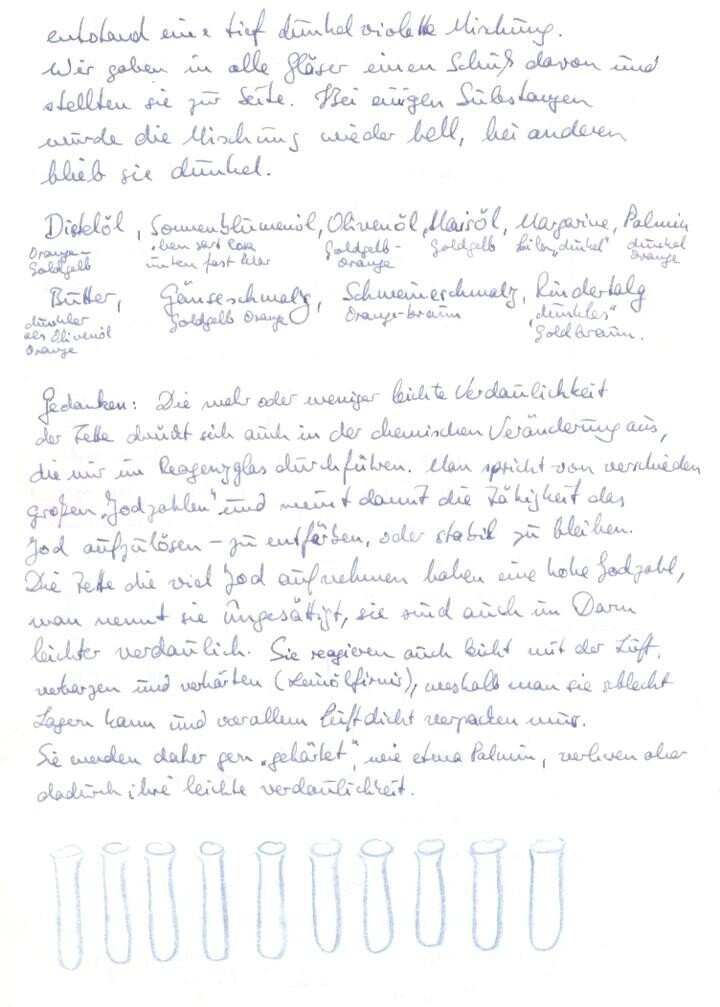 entstand eine tief dunkelviolette Mischung.
Wir gaben in alle Gläser einen Schuß davon und
stellten sie zur Seite. Bei einigen Substanzen
wurde die Mischung wieder hell, bei anderen
blieb sie dunkel.
Distelöl, Sonnenblumenöl, Olivenöl, Maisöl, Margarine, Palmin
Orange- oben zart rosa Goldgelb- Goldgelb "dunkel" dunkel
Goldgelb unten fast klar Orange Orange
Butter, Gänseschmalz, Schweineschmalz, Rindertalg
dunkler Goldgelb Orange Orange-braun "dunkles"
als Olivenöl Goldbraun.
Orange
Gedanken: Die mehr oder weniger leichte Verdaulichkeit
der Fette drückt sich auch in der chemischen Veränderung aus,
die wir im Reagenzglas durchführen. Man spricht von verschieden
großen "Jodzahlen" und meint damit die Fähigkeit das
Jod aufzulösen – zu entfärben, oder stabil zu bleiben.
Die Fette die viel Jod aufnehmen haben eine hohe Jodzahl,
man nennt sie ungesättigt, sie sind auch im Darm
leichter verdaulich. Sie reagieren auch leicht mit der Luft,
verharzen und verhärten (Leinölfirnis), weshalb man sie schlecht
Lagern kann und vorallem luftdicht verpacken muss.
Sie werden daher gern "gehärtet", wie etwa Palmin, verlieren aber
dadurch ihre leichte verdaulichkeit.